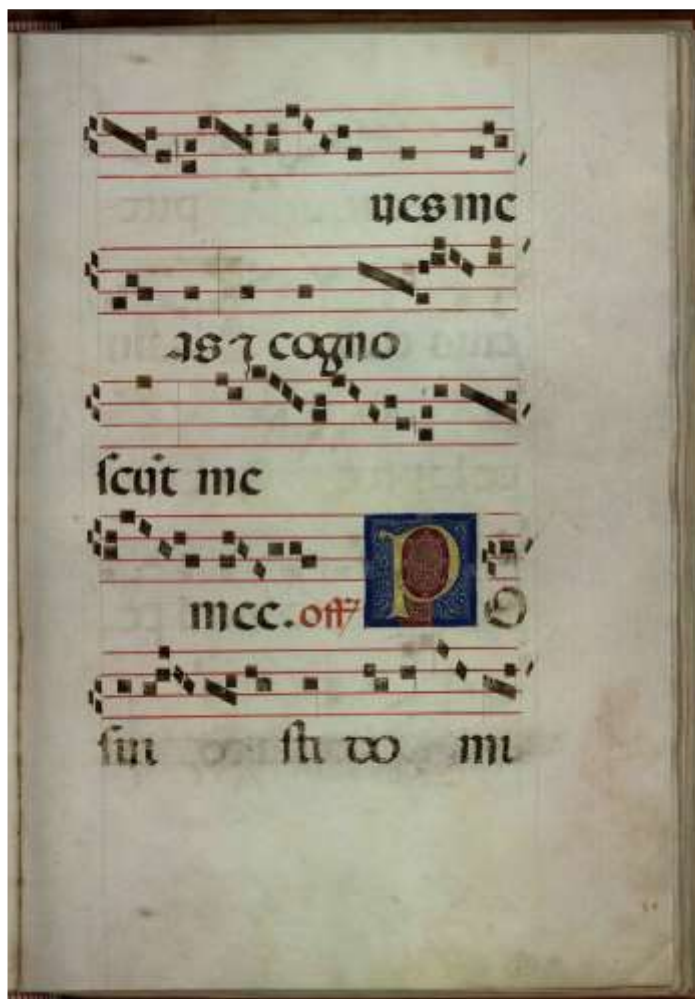 ues me
as ⁊ cogno
scu̅t me
mee. off̅ P O
sui sti do mi